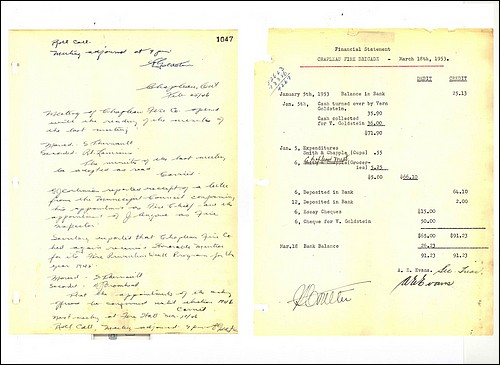 1047
Roll Call.
Meeting adjourned at 4 pm
Chapleau, Ont
Meeting of Chapleau Fire Co. opened
with the reading of the minutes of
the last meeting
Moved - S Therriault
Seconded - 
The minutes of the last meeting
be accepted as read
Carried.
reported receipt of a letter
from the Municipal Council concerning
his appointment as Fire Chief and the
appointment of J. as Fire
Inspector
Secretary reported that Chapleau Fire Co
had again received Honorable Mention
for its Fire Prevention Week Program for the
year 1945.
Moved - S Therriault
Seconded - 
That the appointments of the acting
officers be confirmed until election 1946
Carried
Next meeting at Fire Hall
Roll Call. Meeting adjourned
Financial Statement
CHAPLEAU FIRE BRIGADE - March 18th, 1953.
DEBIT CREDIT
January 5th, 1953 Balance in Bank 25.13
Jan. 5th, Cash turned over by Vern
Goldstein, 35.90
Cash collected
for V. Goldstein 36.00
$71.90
Jan. 5, Expenditures
Smith & Chapple (Cups) .35
6, (Grocer-
ies) 5.25
$5.80 $66.10
6, Deposited in Bank 64.10
12, Deposited in Bank 2.00
6, Rosay Cheques $15.00
6, Cheque for V. Goldstein 50.00
$65.00 $91.23
Mar.18 Bank Balance 26.23
91.23 91.23
A. H. Evans, Sec. Treas.